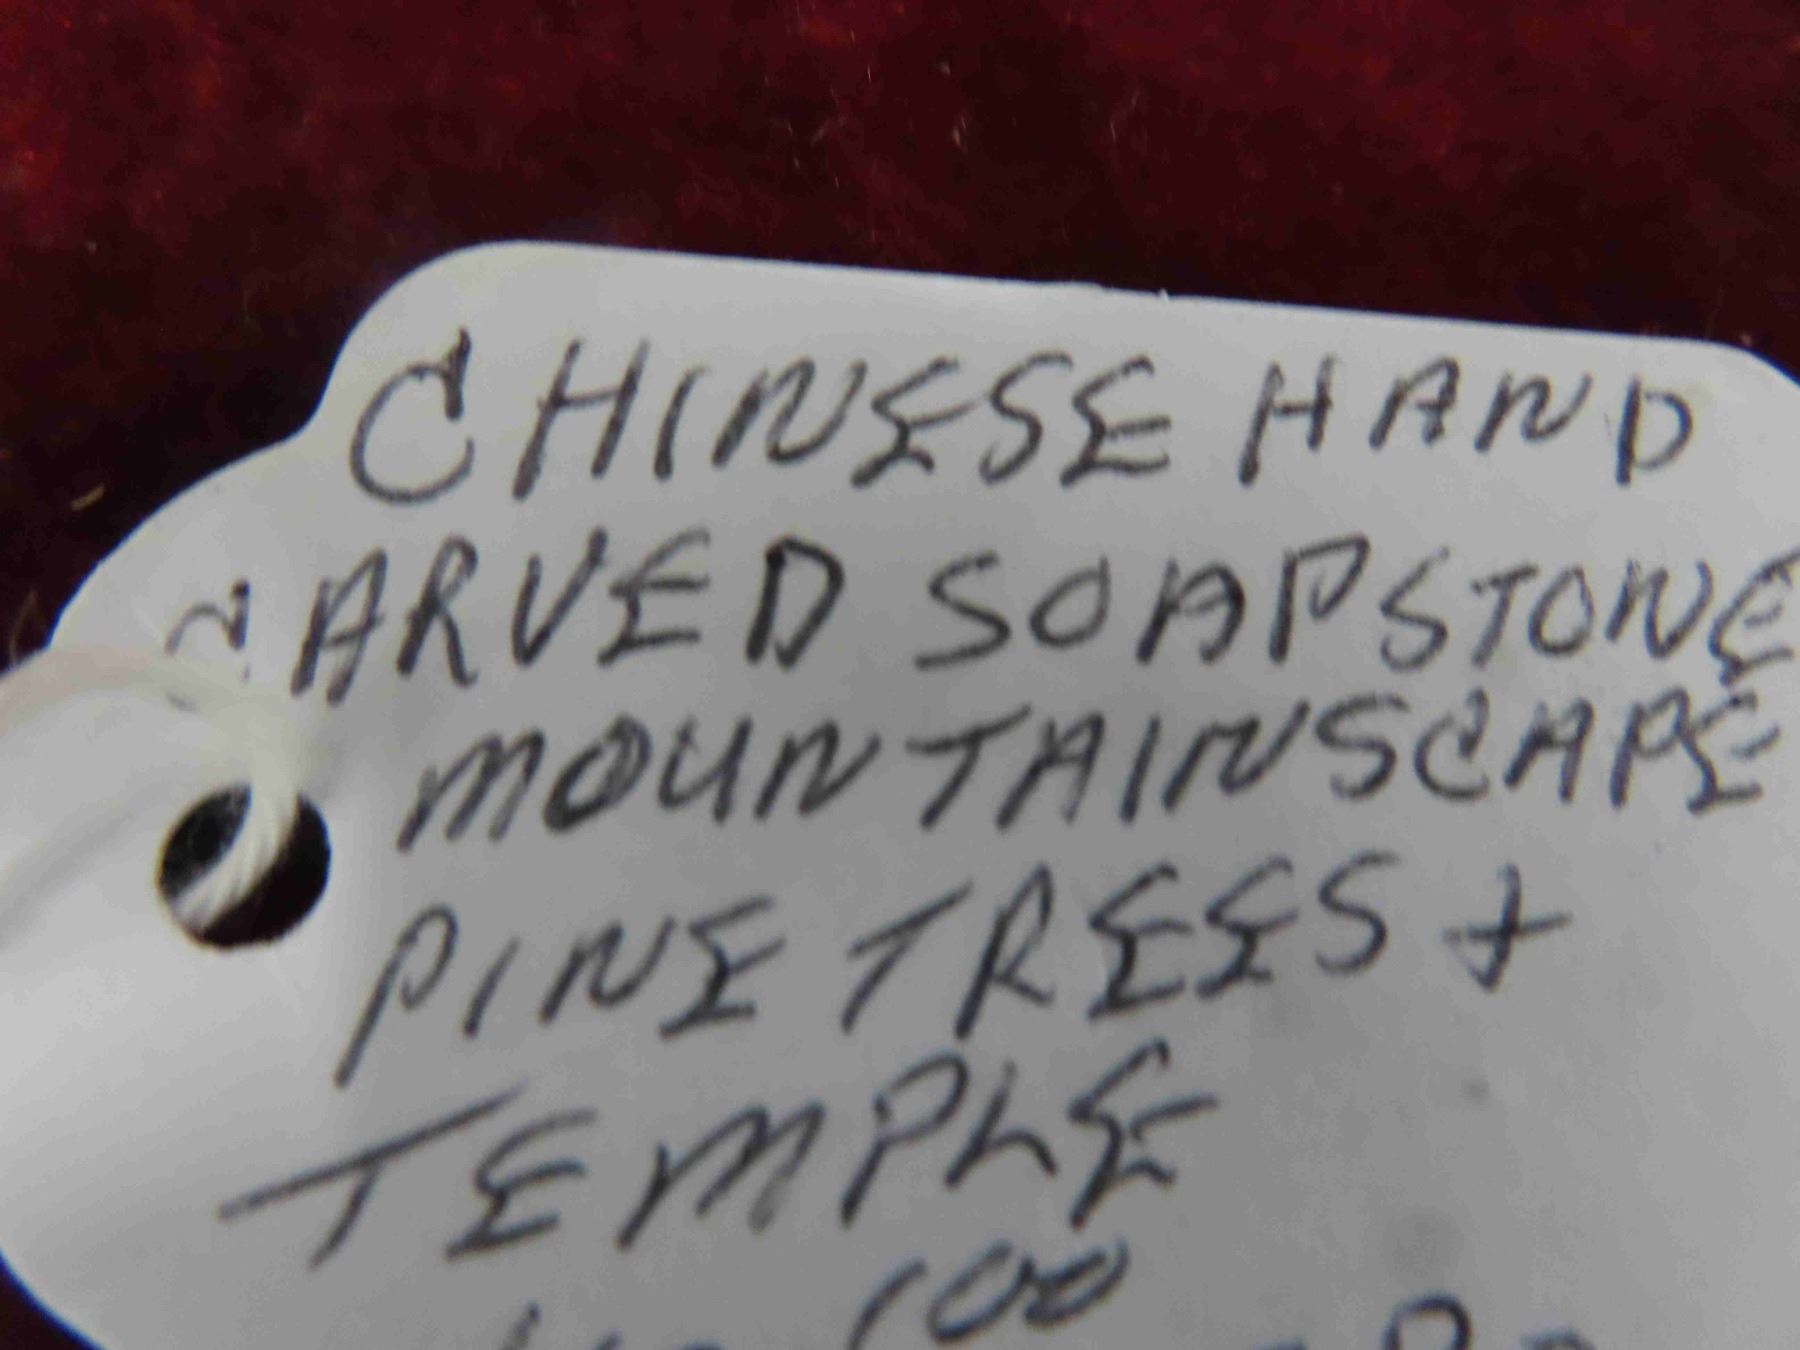 CHINESE HAND
CARVED SOAPSTONE
MOUNTAINSCAPE
PINE TREES +
TEMPLE
100